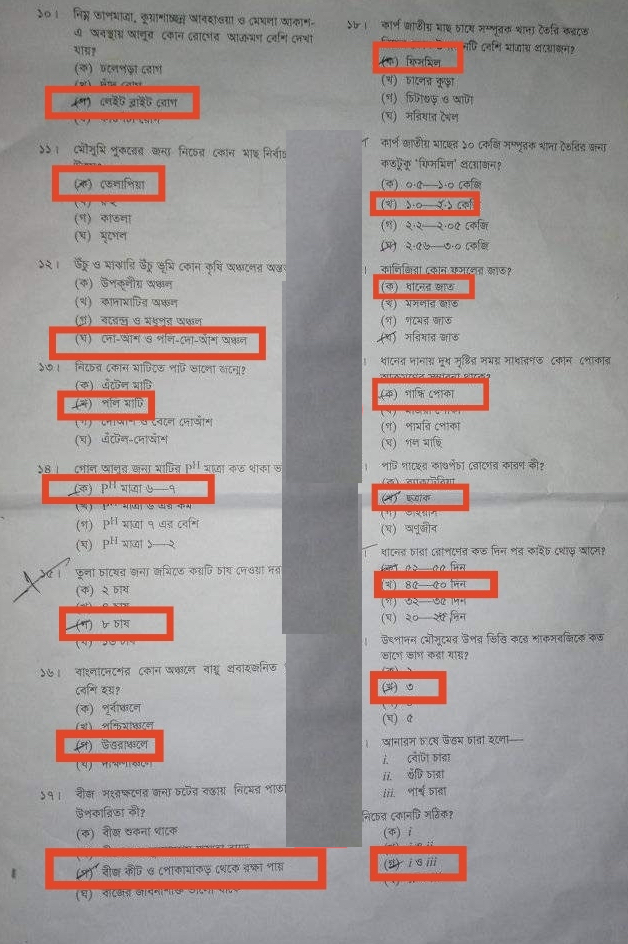 ১০। নিম্ন তাপমাত্রা, কুয়াশাচ্ছন্ন আবহাওয়া ও মেঘলা আকাশ-
এ অবস্থায় আলুর কোন রোগের আক্রমণ বেশি দেখা
যায়?
(ক) ঢলেপড়া রোগ
(গ) লেইট ব্লাইট রোগ
১১। মৌসুমি পুকুরের জন্য নিচের কোন মাছ
(ক) তেলাপিয়া
(গ) কাতলা
(ঘ) মৃগেল
১২। উঁচু ও মাঝারি উঁচু ভূমি কোন কৃষি অঞ্চলের
(ক) উপকূলীয় অঞ্চল
(খ) কাদামাটির অঞ্চল
(গ) বরেন্দ্র ও মধুপুর অঞ্চল
(ঘ) দো-আঁশ ও পলি-দো-আঁশ অঞ্চল
১৩। নিচের কোন মাটিতে পাট ভালো জন্মে?
(ক) এঁটেল মাটি
(খ) পলি মাটি
(গ) দোআঁশ ও বেলে দোআঁশ
(ঘ) এঁটেল-দোআঁশ
১৪। গোল আলুর জন্য মাটির P^H মাত্রা কত থাকা
(ক) P^H মাত্রা ৬—৭
(খ) P^H মাত্রা ৬ এর কম
(গ) P^H মাত্রা ৭ এর বেশি
(ঘ) P^H মাত্রা ১—২
১৫। তুলা চাষের জন্য জমিতে কয়টি চাষ দেওয়া
(ক) ২ চাষ
(গ) ৮ চাষ
১৬। বাংলাদেশের কোন অঞ্চলে বায়ু প্রবাহজনিত
বেশি হয়?
(ক) পূর্বাঞ্চলে
(খ) পশ্চিমাঞ্চলে
(গ) উত্তরাঞ্চলে
(ঘ) দক্ষিণাঞ্চলে
১৭। বীজ সংরক্ষণের জন্য চটের বস্তায় নিমের পাতা
উপকারিতা কী?
(ক) বীজ শুকনা থাকে
(গ) বীজ কীট ও পোকামাকড় থেকে রক্ষা পায়
(ঘ) বীজের জীবনীশক্তি ভালো থাকে
১৮। কার্প জাতীয় মাছ চাষে সম্পূরক খাদ্য তৈরি করতে
বেশি মাত্রায় প্রয়োজন?
(ক) ফিসমিল
(খ) চালের কুড়া
(গ) চিটাগুড় ও আটা
(ঘ) সরিষার খৈল
কার্প জাতীয় মাছের ১০ কেজি সম্পূরক খাদ্য তৈরির জন্য
কতটুকু ‘ফিসমিল’ প্রয়োজন?
(ক) ০·৫—১·০ কেজি
(খ) ১·০—২·১ কেজি
(গ) ২·২—২·০৫ কেজি
(ঘ) ২·৫৬—৩·০ কেজি
কালিজিরা কোন ফসলের জাত?
(ক) ধানের জাত
(খ) মসলার জাত
(গ) গমের জাত
(ঘ) সরিষার জাত
ধানের দানায় দুধ সৃষ্টির সময় সাধারণত কোন পোকার
(ক) গান্ধি পোকা
(গ) পামরি পোকা
(ঘ) গল মাছি
পাট গাছের কাণ্ডপঁচা রোগের কারণ কী?
(ক) ব্যাকটেরিয়া
(খ) ছত্রাক
(গ) ভাইরাস
(ঘ) অণুজীব
ধানের চারা রোপণের কত দিন পর কাইচ থোড় আসে?
(ক) ৫২—৫৫ দিন
(খ) ৪৫—৫০ দিন
(গ) ৩২—৩৫ দিন
(ঘ) ২০—২৫ দিন
উৎপাদন মৌসুমের উপর ভিত্তি করে শাকসবজিকে কত
ভাগে ভাগ করা যায়?
(খ) ৩
(ঘ) ৫
আনারস চাষে উত্তম চারা হলো—
i. বোঁটা চারা
ii. গুঁটি চারা
iii. পার্শ্ব চারা
নিচের কোনটি সঠিক?
(ক) i
(গ) i ও iii